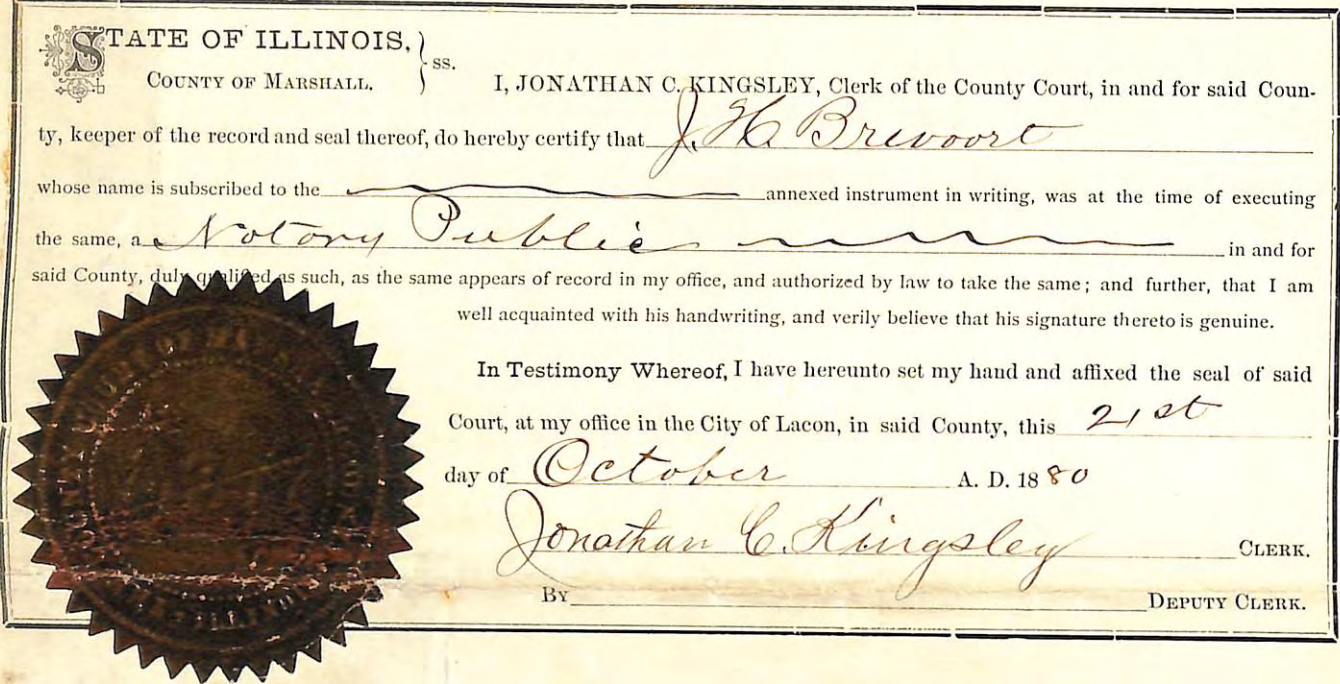 STATE OF ILLINOIS, } ss.
COUNTY OF MARSHALL.
I, JONATHAN C. KINGSLEY, Clerk of the County Court, in and for said Coun-
ty, keeper of the record and seal thereof, do hereby certify that J. H. Brevoort
whose name is subscribed to the annexed instrument in writing, was at the time of executing
the same, a Notary Public in and for
said County, duly qualified as such, as the same appears of record in my office, and authorized by law to take the same; and further, that I am
well acquainted with his handwriting, and verily believe that his signature thereto is genuine.
In Testimony Whereof, I have hereunto set my hand and affixed the seal of said
Court, at my office in the City of Lacon, in said County, this 21st
day of October A. D. 1880
Jonathan C. Kingsley CLERK.
BY DEPUTY CLERK.